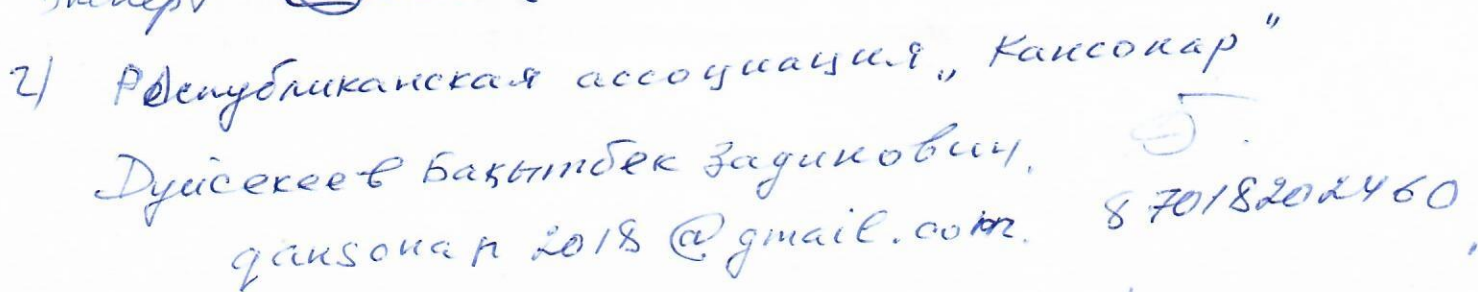 эксперт
2) Республиканская ассоциация „Кансонар"
Дуйсекеев Бақытбек Задинович.
qansonap 2018@gmail.com. 87018202460